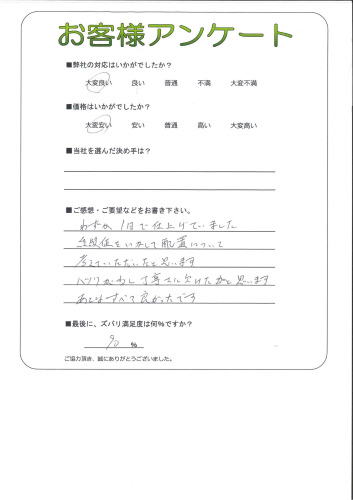 お客様アンケート
■弊社の対応はいかがでしたか？
大変良い 良い 普通 不満 大変不満
■価格はいかがでしたか？
大変安い 安い 普通 高い 大変高い
■当社を選んだ決め手は？
■ご感想・ご要望などをお書き下さい。
わずか1日で仕上げていました
を生かして配置について
考えていただいたと思います
少し丁寧さに欠けたかと思います
あとはすべて良かったです
■最後に、ズバリ満足度は何%ですか？
90 %
ご協力頂き、誠にありがとうございました。